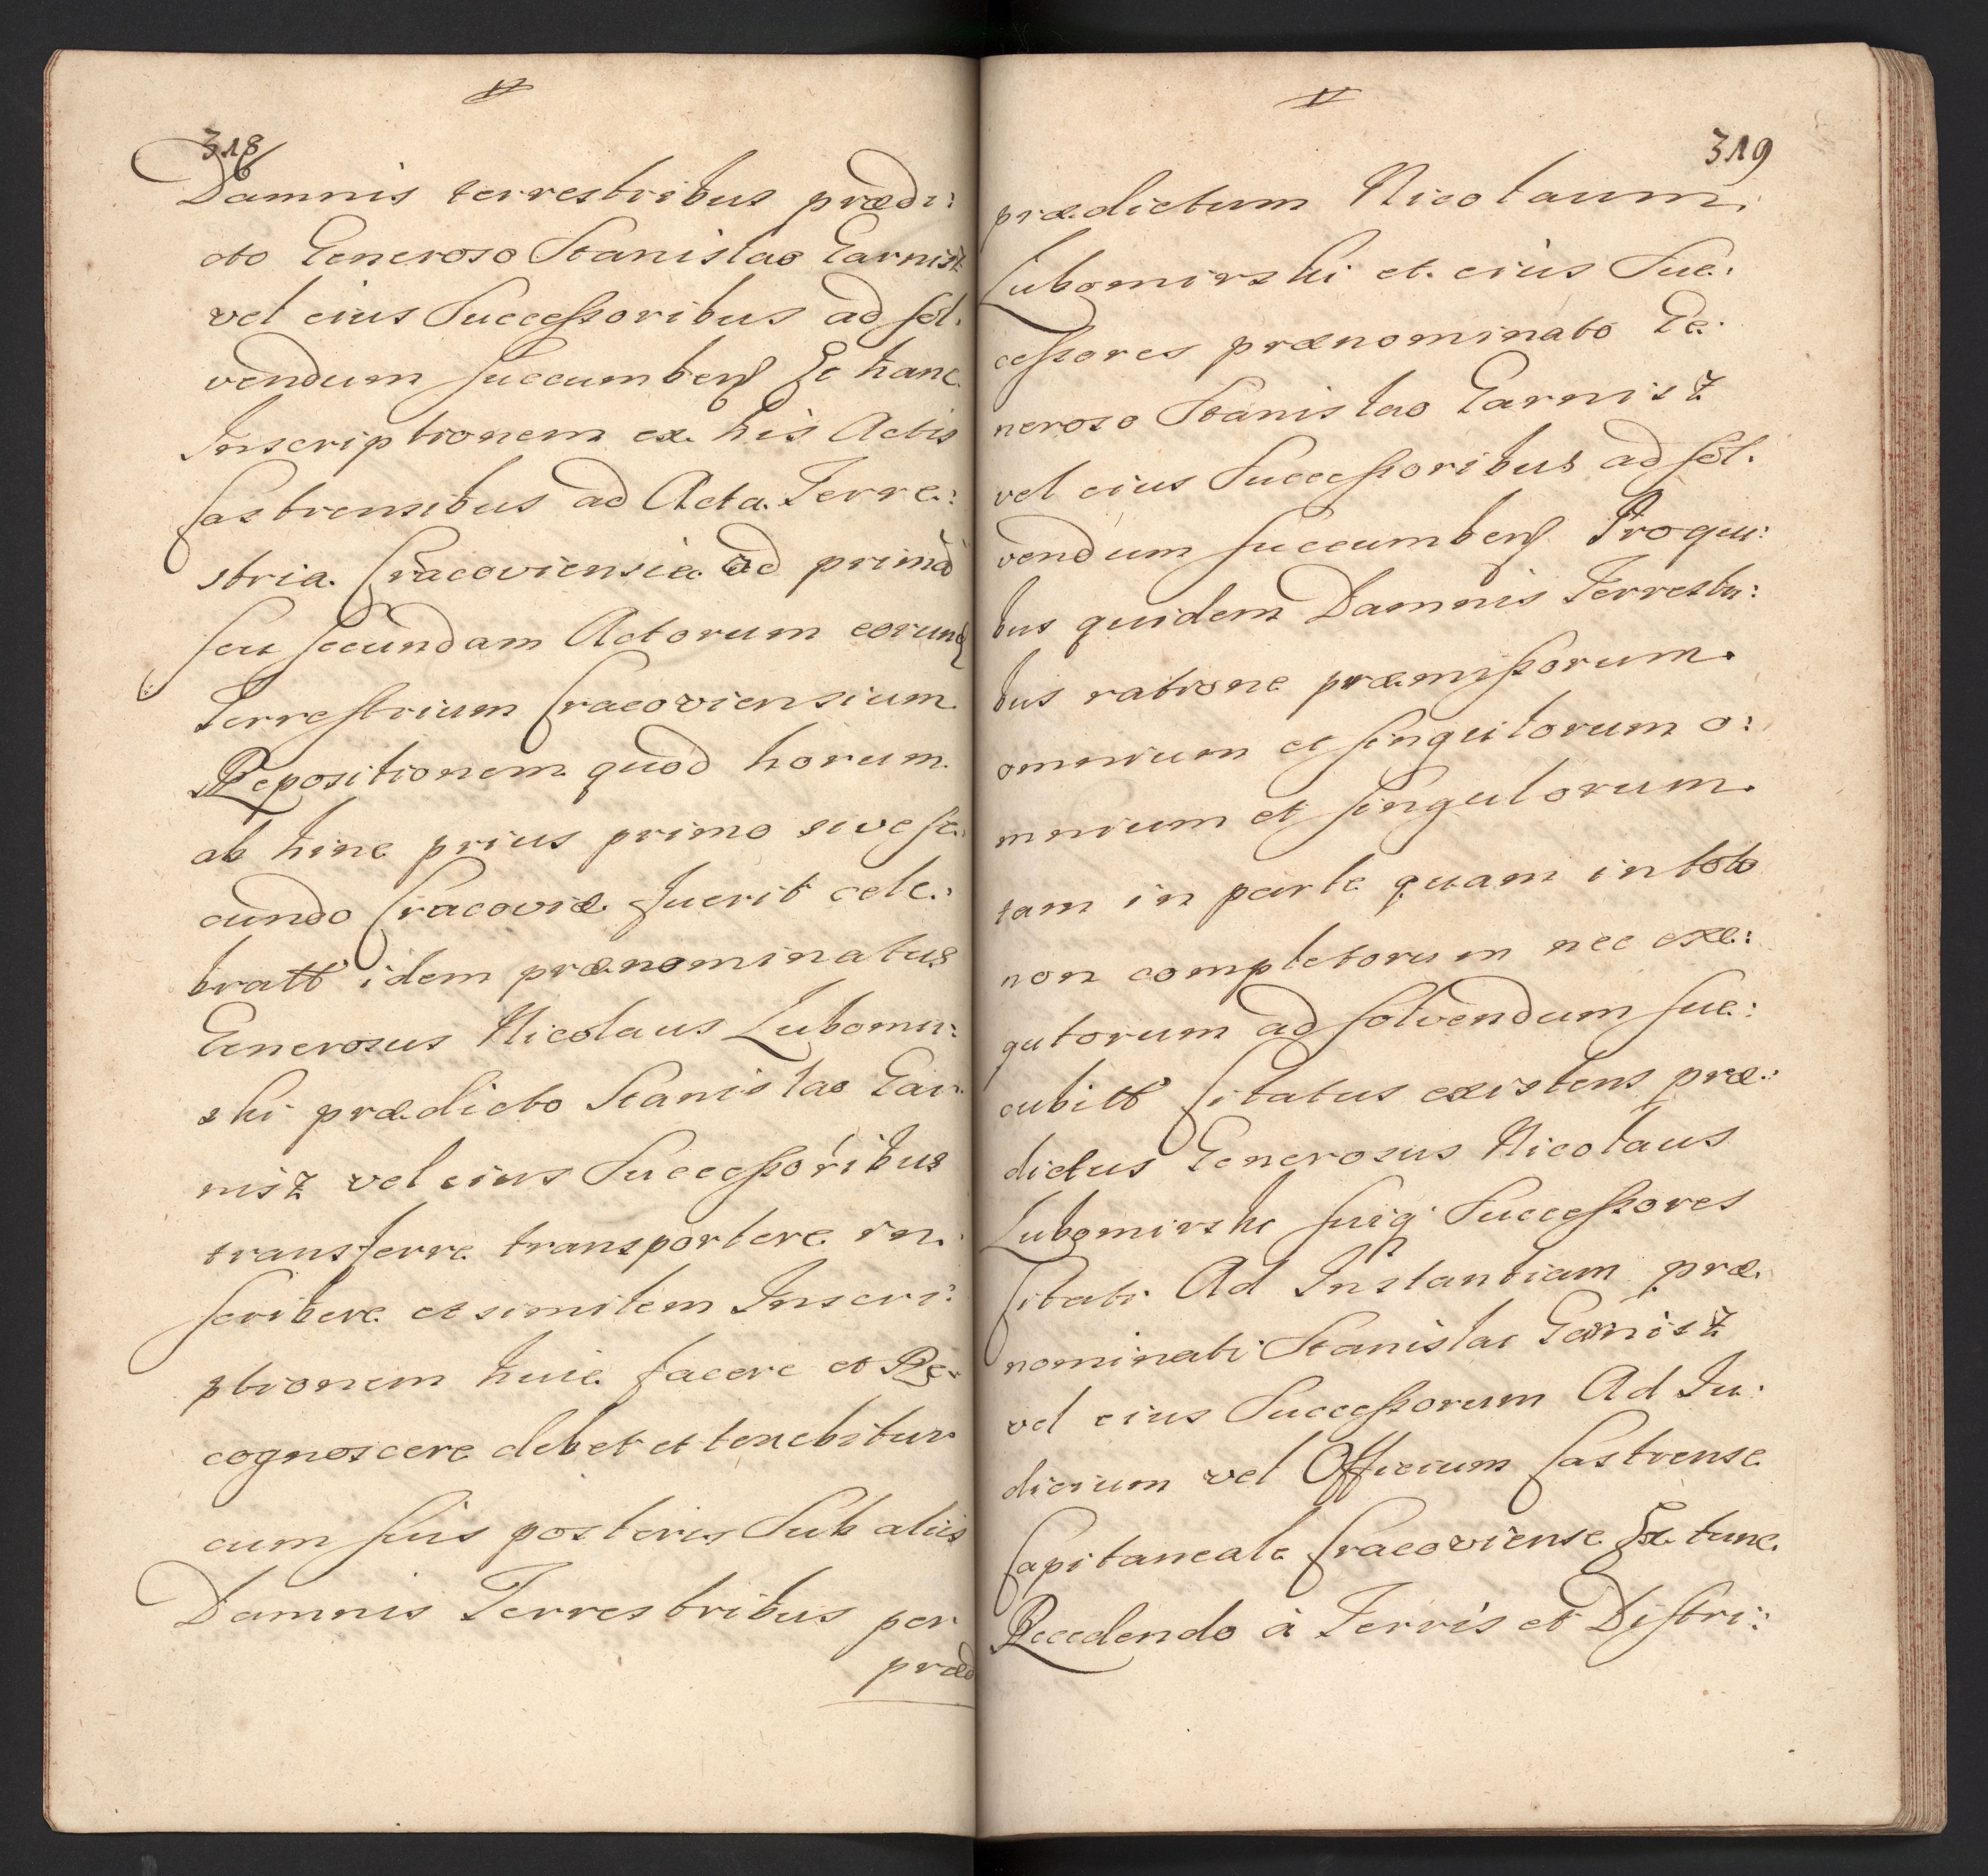 318
Damnis terrestribus prædi:
cto Generoso Stanislao Garnisz
vel eius Successoribus ad sol.
vendum succumben Et hanc
Inscriptionem ex his Actis
Castrensibus ad Acta Terre:
stria Cracoviensia ad primã
seu secundam Actorum eorund
Terrestrium Cracoviensium
Repositionem quod horum
ab hinc prius primo sive se.
cundo Cracoviæ fuerit cele:
bratt idem prænominatus
Generosus Nicolaus Lubomir:
ski prædicto Stanislao Gar.
nisz vel eius Successoribus
transferre transportere in.
scribere et similem Inscri:
ptionem huic facere et Re.
cognoscere debet et tenebitur
cum suis posteris Sub aliis
Damnis Terrestribus per
præd
319
prædictum Nicolaum
Lubomirski et eius Suc.
cessores prænominato Ge.
neroso Stanislao Garnisz
vel eius Successoribus ad sol.
vendum succumben Pro qui:
bus quidem Damnis Terrestri:
bus ratione præmissorum
omnium et singulorum o:
mnium et singulorum
tam in parte quam in toto
non completorum nec exe:
qutorum ad solvendum suc:
cubitt Citatus existens præ:
dictus Generosus Nicolaus
Lubomirski suiq Successores
Citati Ad Instantiam præ.
nominati Stanislai Garnisz
vel eius Successorum Ad Iu.
dicium vel Officium Castrense
Capitaneale Cracoviense Ex tunc
Recedendo à Terris et Distri: